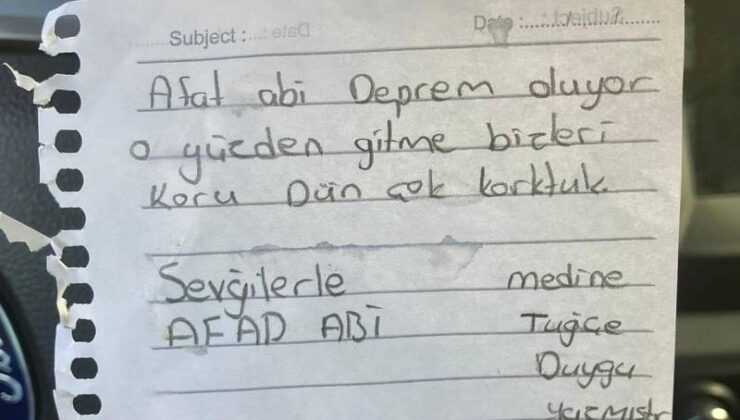 Subject : Date :
Afat abi Deprem oluyor
o yüzden gitme bizleri
Koru Dün çok korktuk
Sevğilerle medine
AFAD ABİ Tuğçe
Duygu
yazmıştr